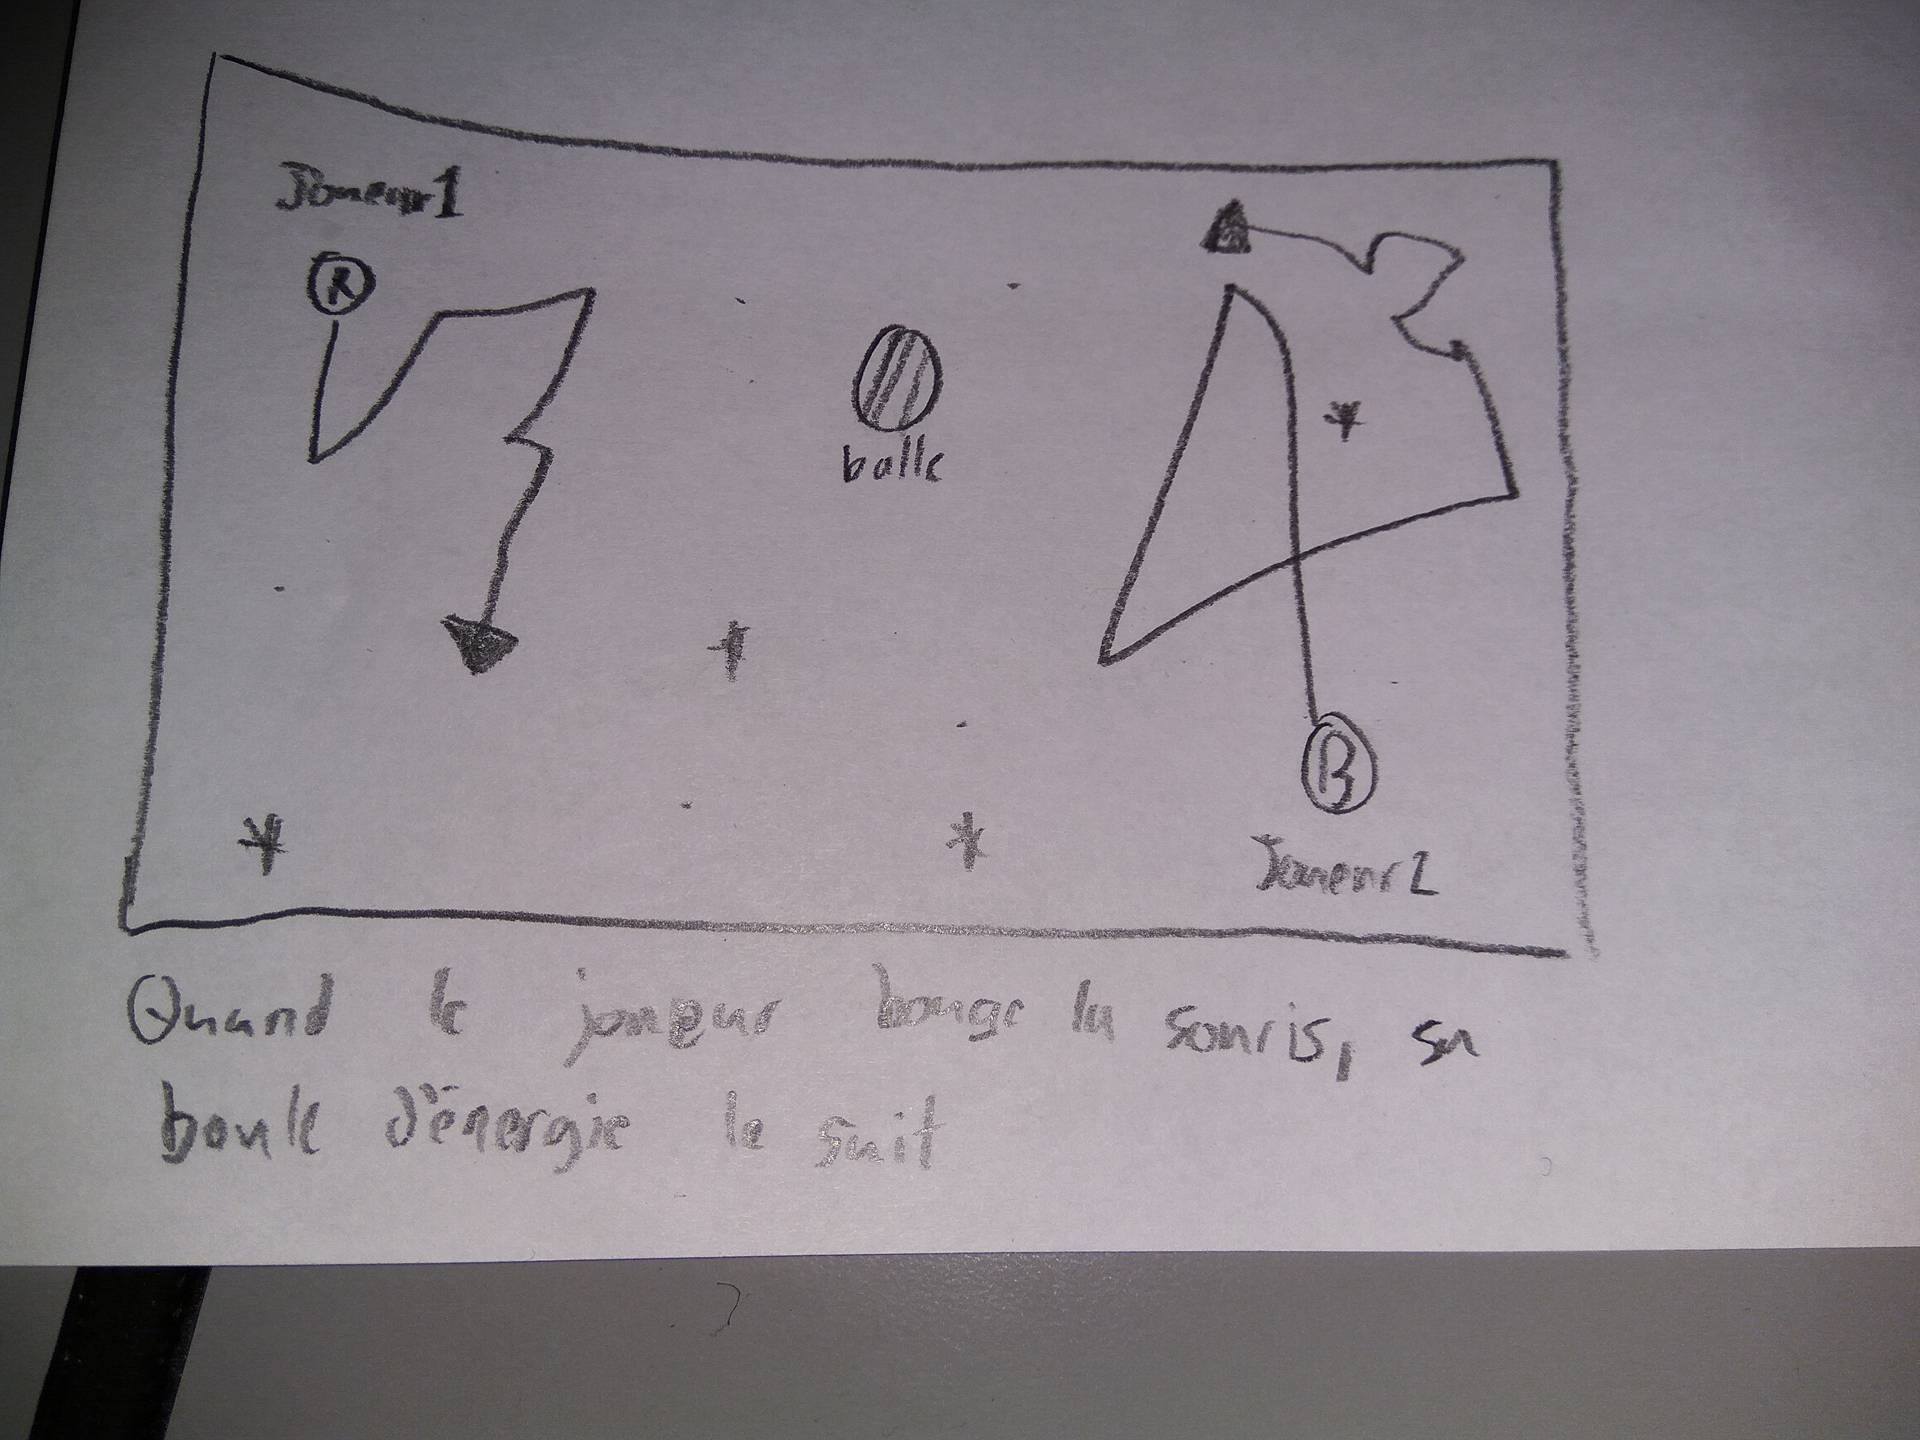 Joueur 1
R
balle
B
Joueur 2
Quand le joueur bouge la souris, sa
boule d'énergie le suit